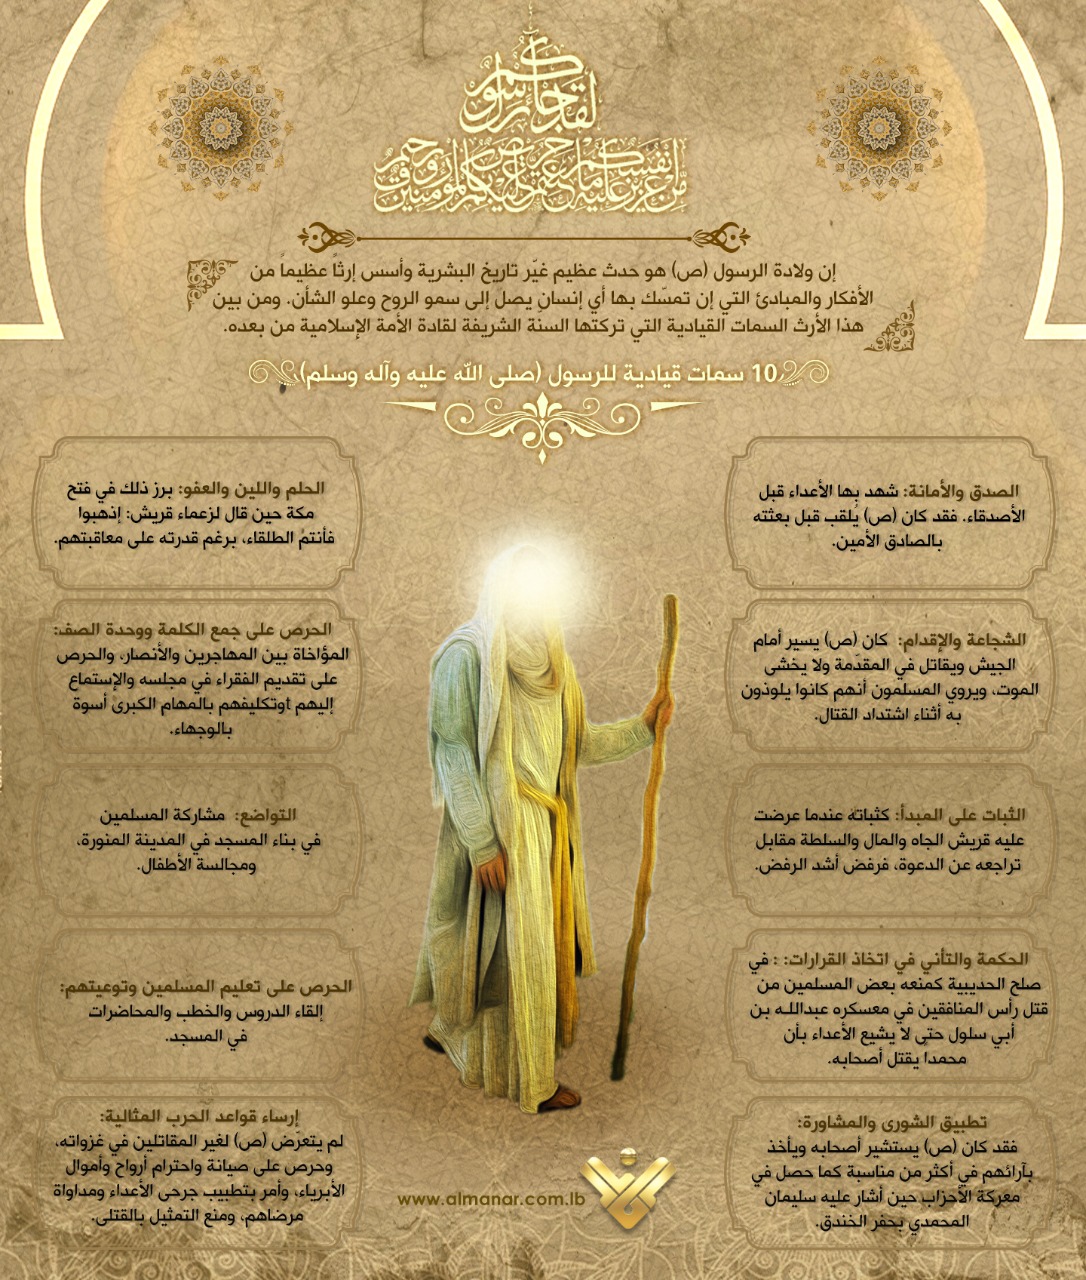 لقد جاءكم رسول
من أنفسكم عزيز عليه ما عنتم حريص عليكم بالمؤمنين رؤوف رحيم
إن ولادة الرسول (ص) هو حدث عظيم غيّر تاريخ البشرية وأسس إرثاً عظيماً من
الأفكار والمبادئ التي إن تمسّك بها أي إنسان يصل إلى سمو الروح وعلو الشأن. ومن بين
هذا الأرث السمات القيادية التي تركتها السنة الشريفة لقادة الأمة الإسلامية من بعده.
10 سمات قيادية للرسول (صلى الله عليه وآله وسلم)
الصدق والأمانة: شهد بها الأعداء قبل
الأصدقاء. فقد كان (ص) يُلقب قبل بعثته
بالصادق الأمين.
الشجاعة والإقدام: كان (ص) يسير أمام
الجيش ويقاتل في المقدّمة ولا يخشى
الموت، ويروي المسلمون أنهم كانوا يلوذون
به أثناء اشتداد القتال.
الثبات على المبدأ: كثباته عندما عرضت
عليه قريش الجاه والمال والسلطة مقابل
تراجعه عن الدعوة، فرفض أشد الرفض.
الحكمة والتأني في اتخاذ القرارات: : في
صلح الحديبية كمنعه بعض المسلمين من
قتل رأس المنافقين في معسكره عبدالله بن
أبي سلول حتى لا يشيع الأعداء بأن
محمدا يقتل أصحابه.
تطبيق الشورى والمشاورة:
فقد كان (ص) يستشير أصحابه ويأخذ
بآرائهم في أكثر من مناسبة كما حصل في
معركة الأحزاب حين أشار عليه سليمان
المحمدي بحفر الخندق.
الحلم واللين والعفو: برز ذلك في فتح
مكة حين قال لزعماء قريش: إذهبوا
فأنتم الطلقاء، برغم قدرته على معاقبتهم.
الحرص على جمع الكلمة ووحدة الصف:
المؤاخاة بين المهاجرين والأنصار، والحرص
على تقديم الفقراء في مجلسه والإستماع
إليهم أوتكليفهم بالمهام الكبرى أسوة
بالوجهاء.
التواضع: مشاركة المسلمين
في بناء المسجد في المدينة المنورة،
ومجالسة الأطفال.
الحرص على تعليم المسلمين وتوعيتهم:
إلقاء الدروس والخطب والمحاضرات
في المسجد.
إرساء قواعد الحرب المثالية:
لم يتعرّض (ص) لغير المقاتلين في غزواته،
وحرص على صيانة واحترام أرواح وأموال
الأبرياء، وأمر بتطبيب جرحى الأعداء ومداواة
مرضاهم، ومنع التمثيل بالقتلى.
www.almanar.com.lb